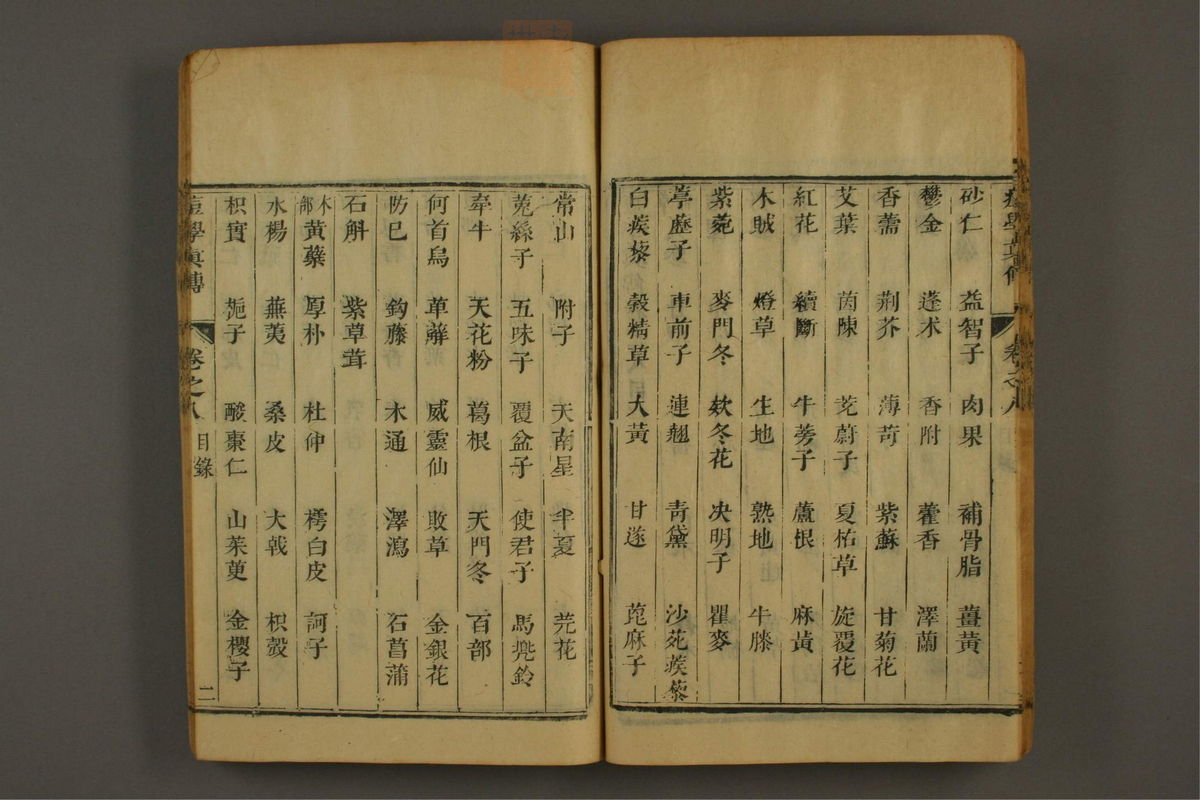 砂仁 益智子 肉果 補骨脂 薑黃
鬱金 蓬术 香附 藿香 澤蘭
香薷 荆芥 薄苛 紫蘇 甘菊花
艾葉 茵陳 茺蔚子 夏枯草 旋覆花
紅花 續斷 牛蒡子 蘆根 麻黃
木賊 燈草 生地 熟地 牛膝
紫菀 麥門冬 欵冬花 决明子 瞿麥
葶藶子 車前子 連翹 青黛 沙苑蒺藜
白蒺藜 穀精草 大黃 甘遂 萞麻子
常山 附子 天南星 半夏 芫花
菟絲子 五味子 覆盆子 使君子 馬兠鈴
牽牛 天花粉 葛根 天門冬 百部
何首烏 萆薢 威靈仙 敗草 金銀花
防巳 鈎藤 木通 澤瀉 石菖蒲
石斛 紫草茸
木部 黃蘗 厚朴 杜仲 樗白皮 訶子
水楊 蕪荑 桑皮 大戟 枳殼
枳實 梔子 酸棗仁 山茱萸 金櫻子
痘學真傳 卷之八 目錄 二